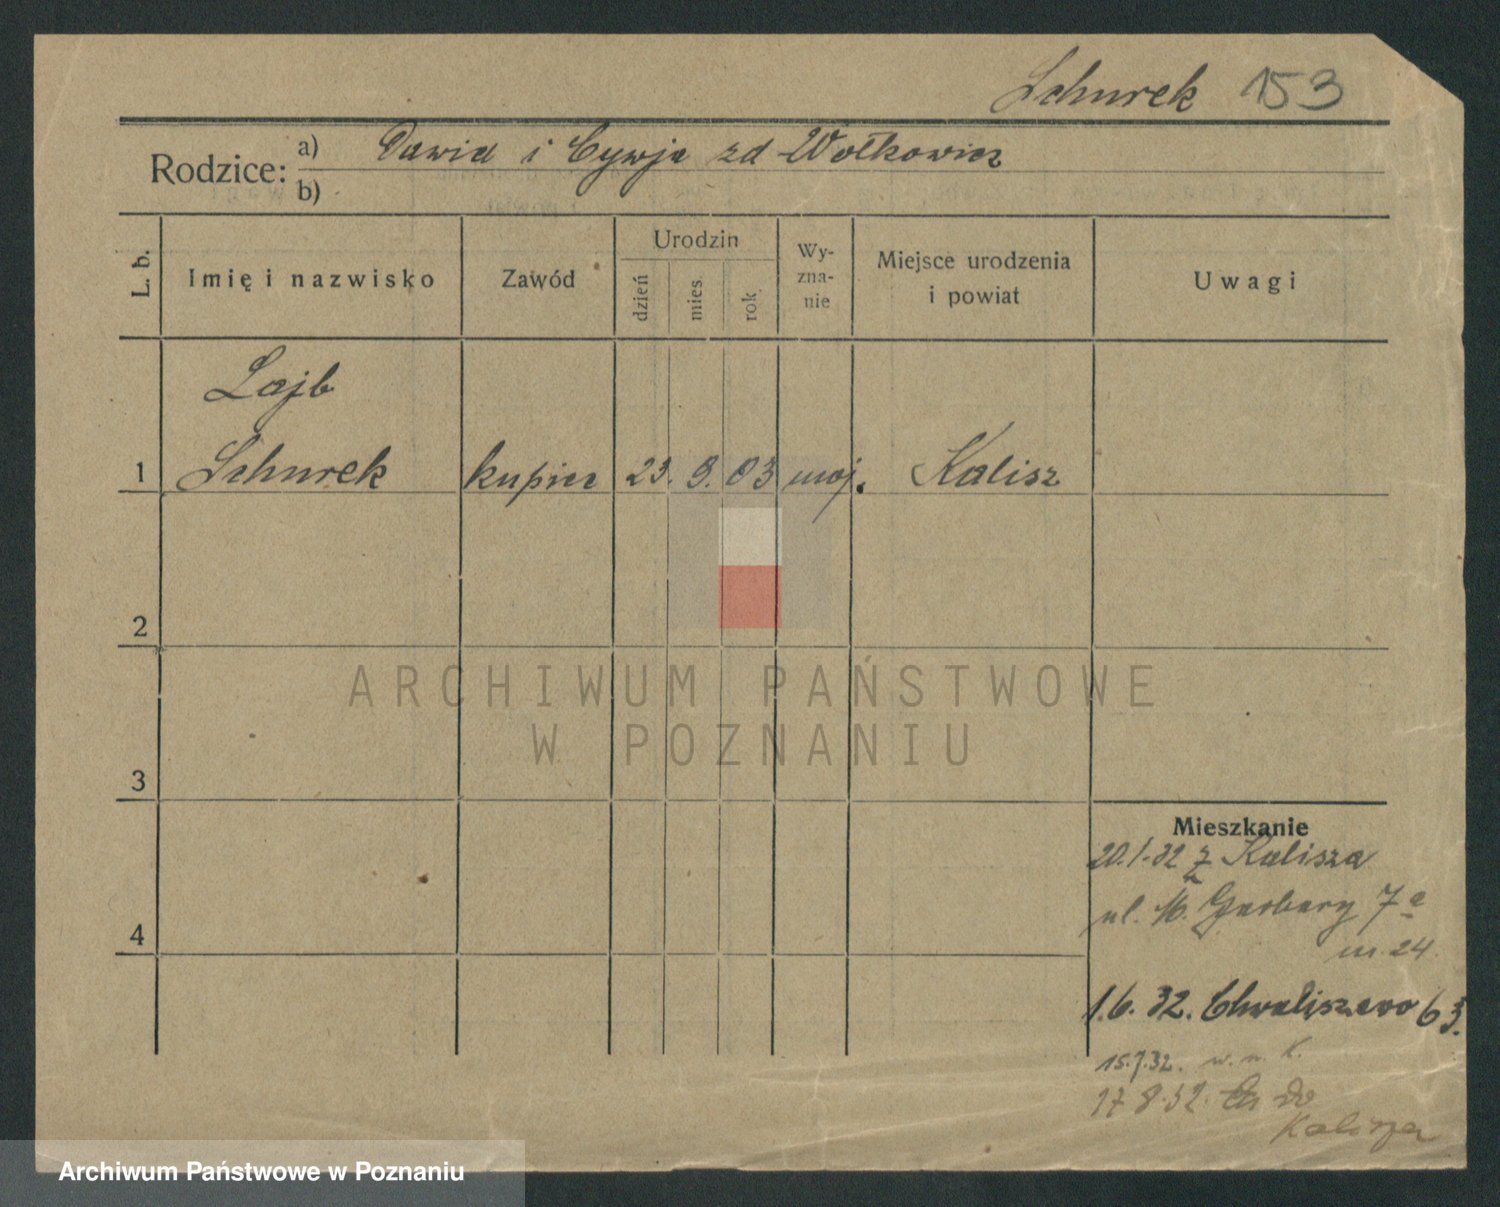 Schurek 153
Rodzice: a) Dawid i Cywja zd Wołkowicz
b)
L. b.
Imię i nazwisko
Zawód
Urodzin
dzień
mies
rok
Wy-
zna-
nie
Miejsce urodzenia
i powiat
Uwagi
Lajb
1 Schurek kupiec 23. 9. 03 moj. Kalisz
2
ARCHIWUM PAŃSTWOWE
W POZNANIU
3
Mieszkanie
20.1.32 z Kalisza
ul. M. Garbary 7a
m. 24
4
1.6.32. Chwaliszewo 63.
15.7.32. w. n. K.
17 8.32. do
Kalisza
Archiwum Państwowe w Poznaniu